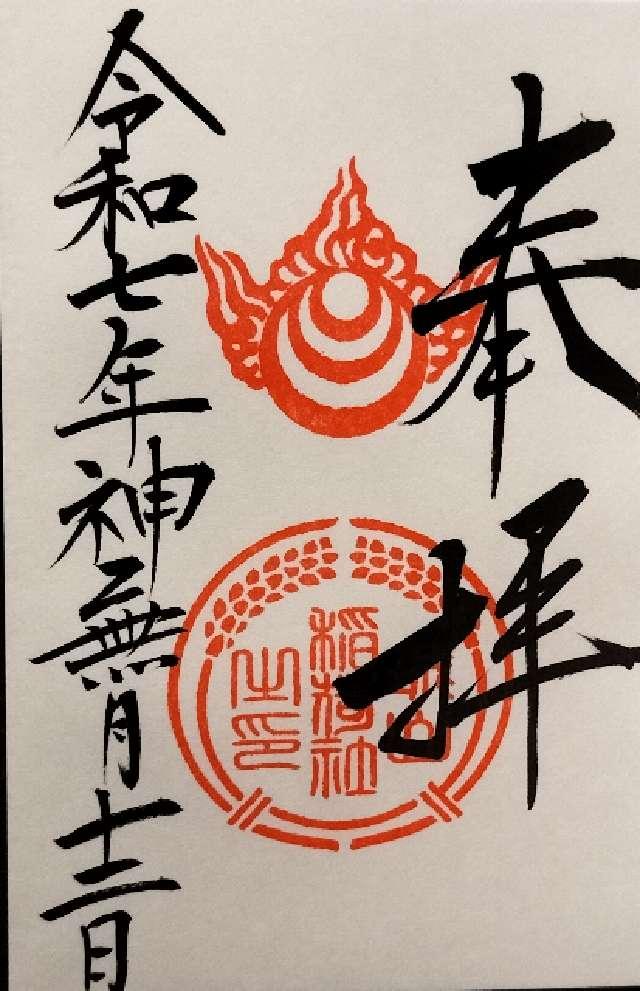 奉拝
稲荷社
之印
令和七年神無月十二日